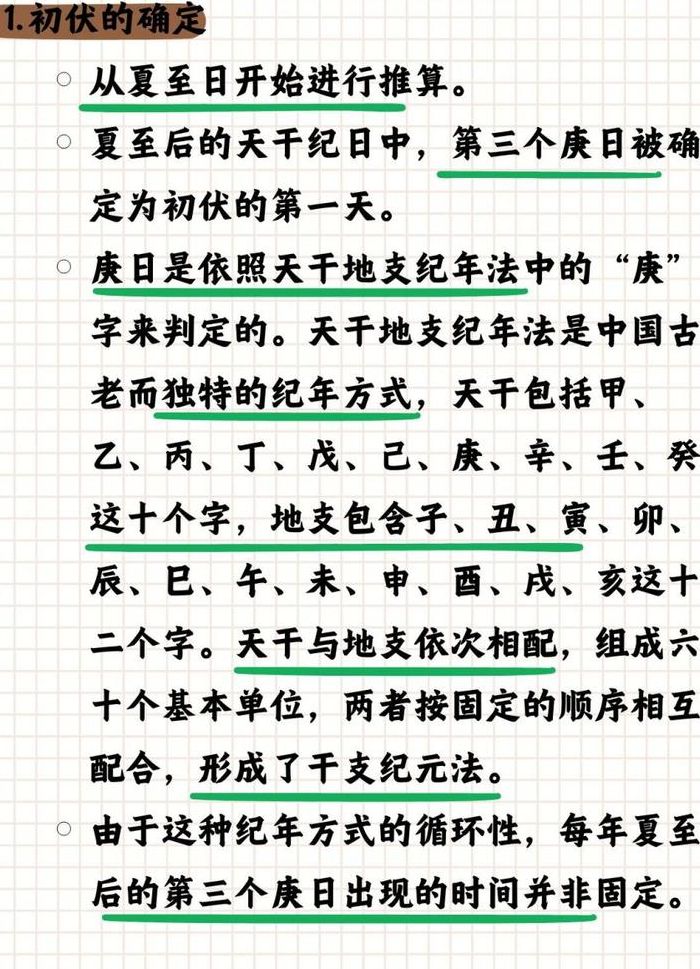 1.初伏的确定
从夏至日开始进行推算。
夏至后的天干纪日中，第三个庚日被确
定为初伏的第一天。
庚日是依照天干地支纪年法中的“庚”
字来判定的。天干地支纪年法是中国古
老而独特的纪年方式，天干包括甲、
乙、丙、丁、戊、己、庚、辛、壬、癸
这十个字，地支包含子、丑、寅、卯、
辰、巳、午、未、申、酉、戌、亥这十
二个字。天干与地支依次相配，组成六
十个基本单位，两者按固定的顺序相互
配合，形成了干支纪元法。
由于这种纪年方式的循环性，每年夏至
后的第三个庚日出现的时间并非固定。